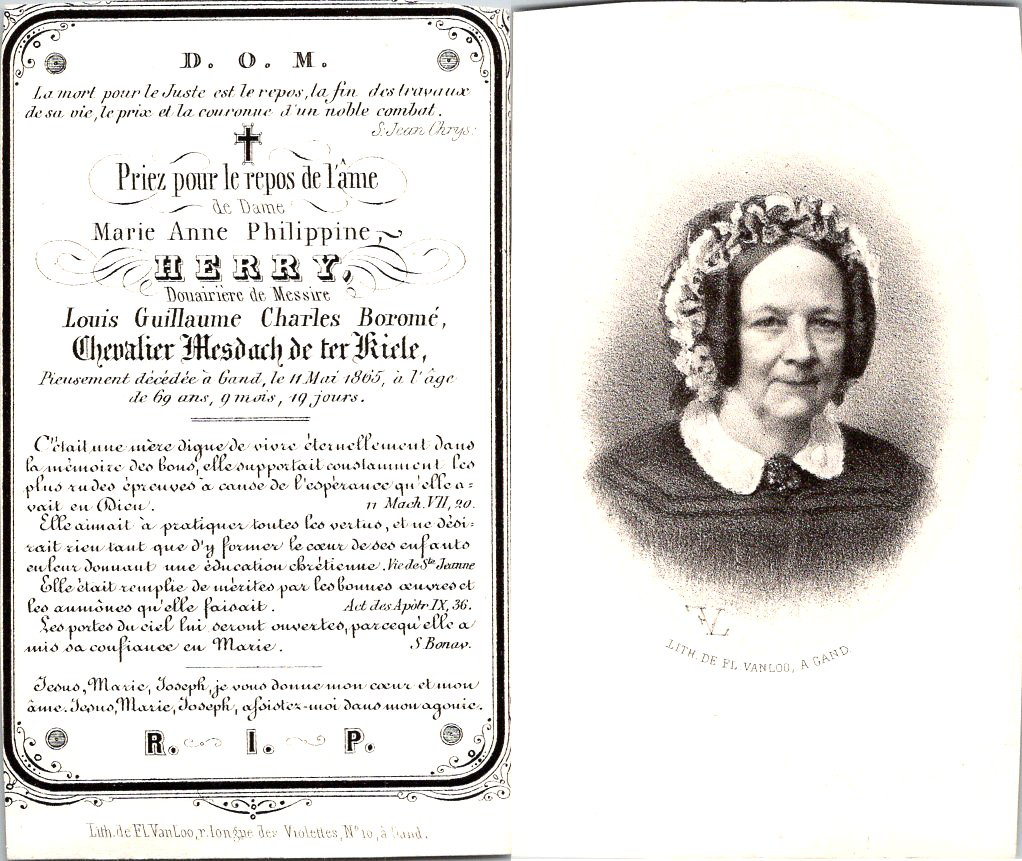 D. O. M.
La mort pour le Juste est le repos, la fin des travaux
de sa vie, le prix et la couronne d'un noble combat.
S. Jean Chrys:
Priez pour le repos de l'âme
de Dame
Marie Anne Philippine,
HERRY,
Douairière de Messire
Louis Guillaume Charles Boromé,
Chevalier Mesdach de ter Kiele,
Pieusement décédée à Gand, le 11 Mai 1865, à l'âge
de 69 ans, 9 mois, 19 jours.
C'était une mère digne de vivre éternellement dans
la mémoire des bons, elle supportait constamment les
plus rudes épreuves à cause de l'espérance qu'elle a=
vait en Dieu. 11 Mach. VII, 20.
Elle aimait à pratiquer toutes les vertus, et ne dési-
rait rien tant que d'y former le cœur de ses enfants
en leur donnant une éducation chrétienne. Vie de Ste Jeanne
Elle était remplie de mérites par les bonnes œuvres et
les aumônes qu'elle faisait. Act des Apôtr IX, 36.
Les portes du ciel lui seront ouvertes, parcequ'elle a
mis sa confiance en Marie. S. Bonav.
Jesus, Marie, Joseph, je vous donne mon cœur et mon
âme. Jesus, Marie, Joseph, assistez-moi dans mon agonie.
R. I. P.
Lith. de Fl. Van Loo, r. longue des Violettes, No 10, à Gand.
FVL
LITH. DE FL VANLOO, A GAND